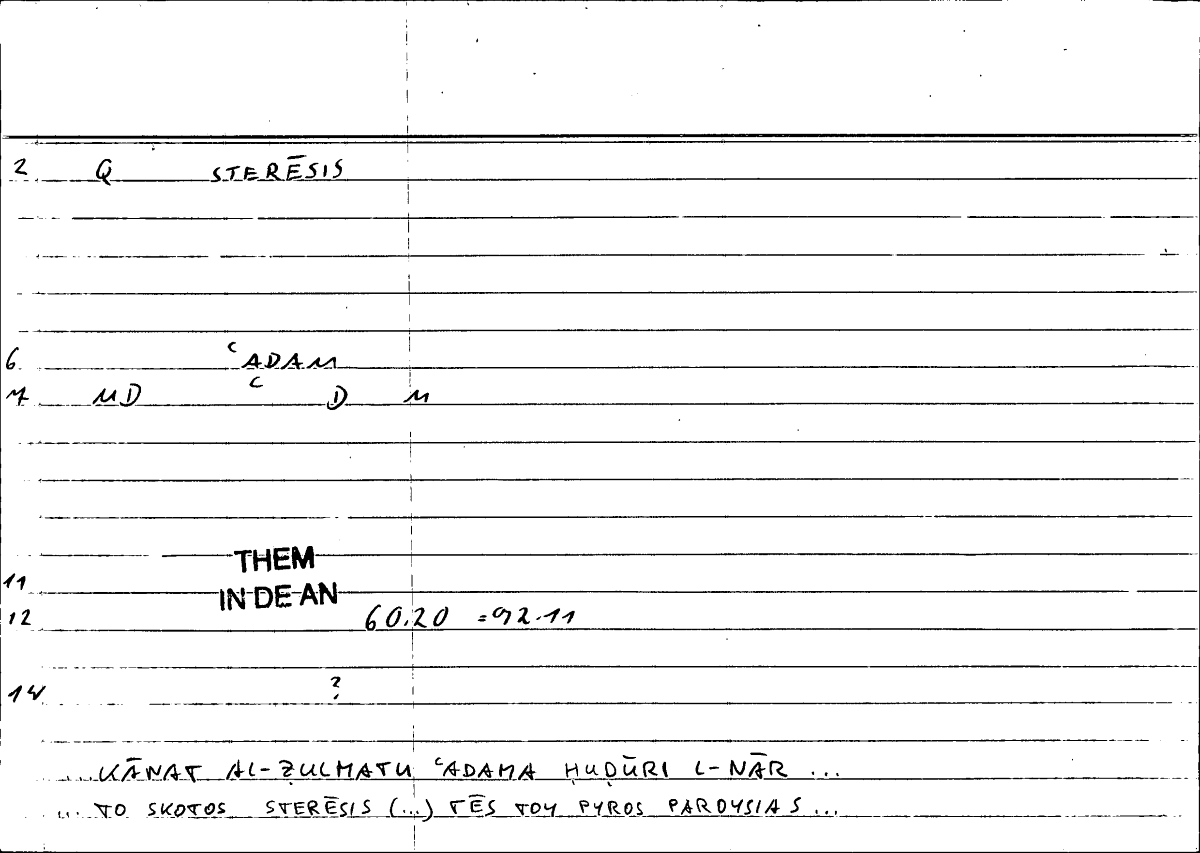 2 Q STERĒSIS
6 ʿADAM
7 MD ʿ D M
THEM
11 IN DE AN
12 60.20 =92.11
14 ?
... KĀNAT AL-ẒULMATU ʿADAMA ḤUḌŪRI L-NĀR ...
... TO SKOTOS STERĒSIS (...) TĒS TOY PYROS PAROYSIAS ...